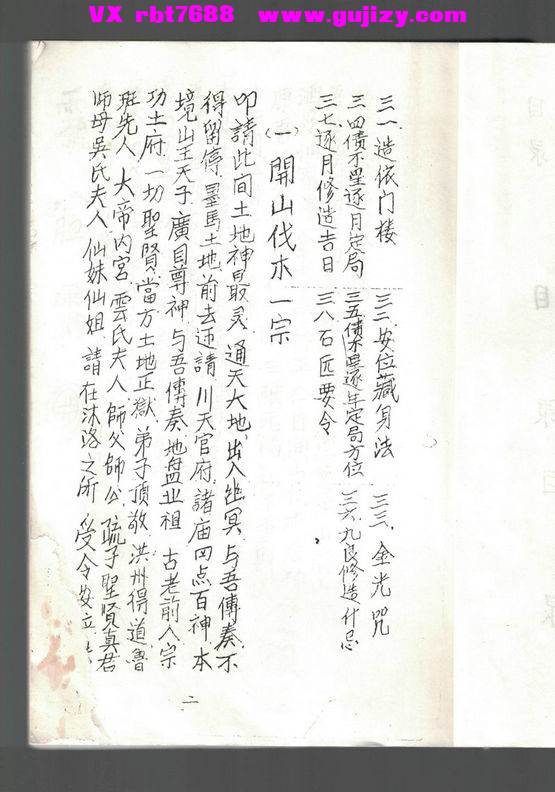 VX rbt7688 www.gujizy.com
三一、造依门楼 三二、安位藏身法 三三、金光咒
三四债不星逐月定局 三五债木星逐年定局方位 三六、九良修造什忌
三七、逐月修造吉日 三八石匠要令
（一）開山伐木一宗
叩請此间土地神最灵通天大地出入幽冥与吾傳奏不
得留停墨馬土地前去还請川天官府諸庙四点百神本
境山王天子廣目尊神与吾傳奏地盘业祖古老前人宗
功土府一切聖賢當方土地正獄弟子頂敬洪州得道魯
班先人大帝內宮雲氏夫人師父師公疏子聖賢真君
師母吳氏夫人仙妹仙姐請在沐洛之所受令安立
二